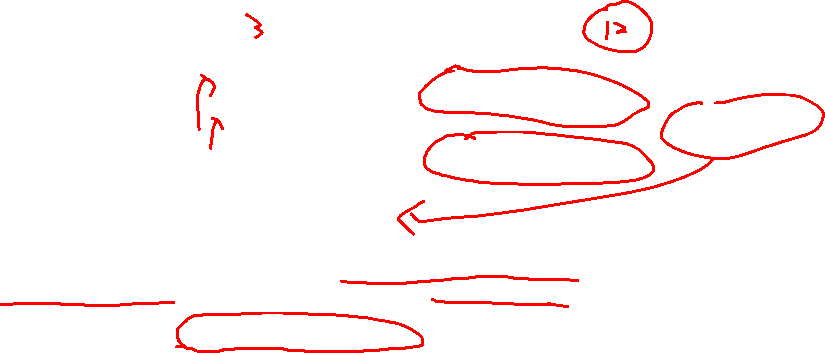 3 12